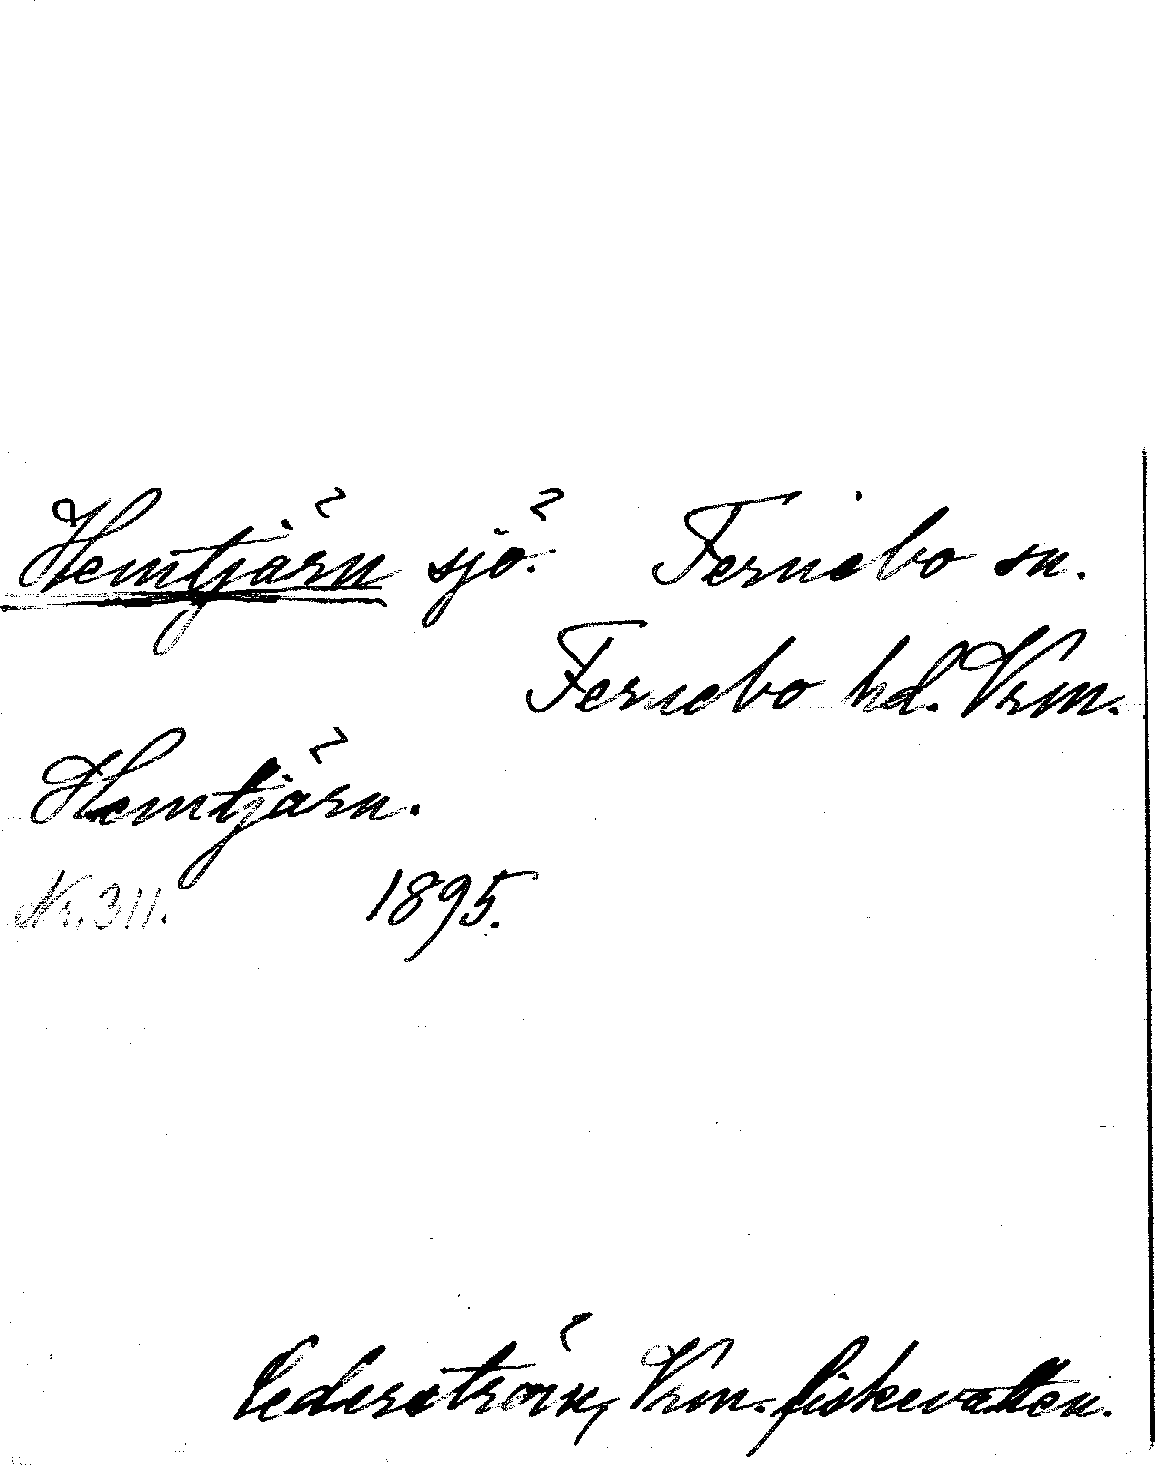 Hemtjärn sjö. Fernebo sn.
Fernebo hd. Vrm.
Hemtjärn.
Nr. 311. 1895.
Cederström, Vrm. fiskevatten.